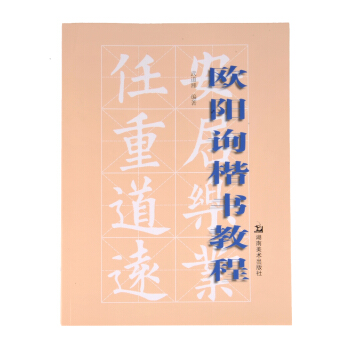 欧阳询楷书教程
编著
安居乐业
任重道遠
湖南美术出版社